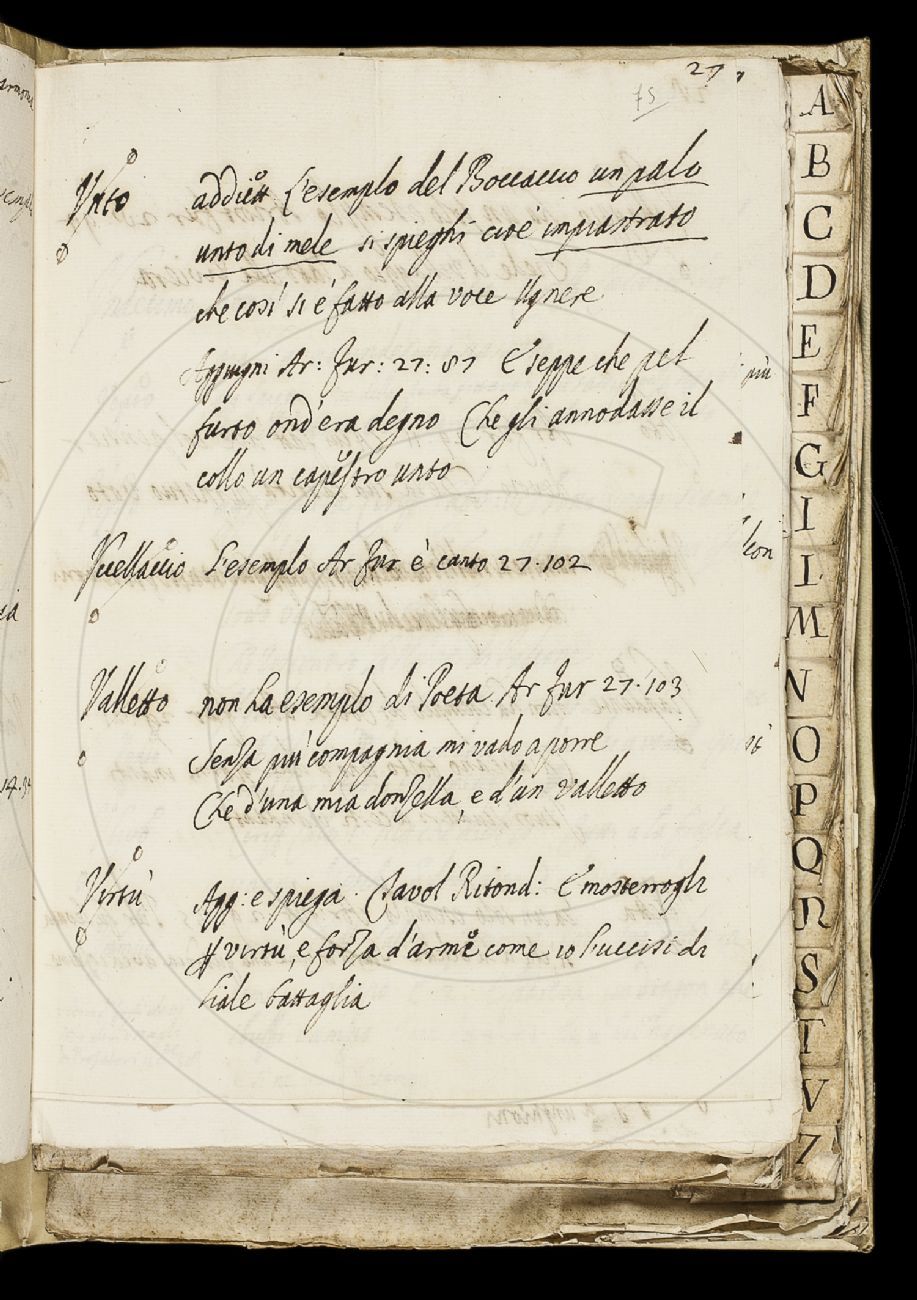 27
75
Unto addiett L'esemplo del Boccaccio un palo
unto di mele si spieghi cioè impiastrato
che così si è fatto alla voce Ugnere
Aggiugni Ar: fur: 27: 87 E seppe che pel
furto ond'era degno Che gli annodasse il
collo un capestro unto
Vccellaccio L'esemplo Ar fur è canto 27.102
Valletto non ha esemplo di Poeta Ar fur 27.103
Senza più compagnia mi vado a porre
Che d'una mia donzella, e d'un valletto
Virtù Agg: e spiega. Tavol Ritond: E mosterrogli
virtù, e forza d'arme come io l'uccisi di
liale battaglia
più
con
A
B
C
D
E
F
G
I
L
M
N
O
P
Q
R
S
T
V
Z